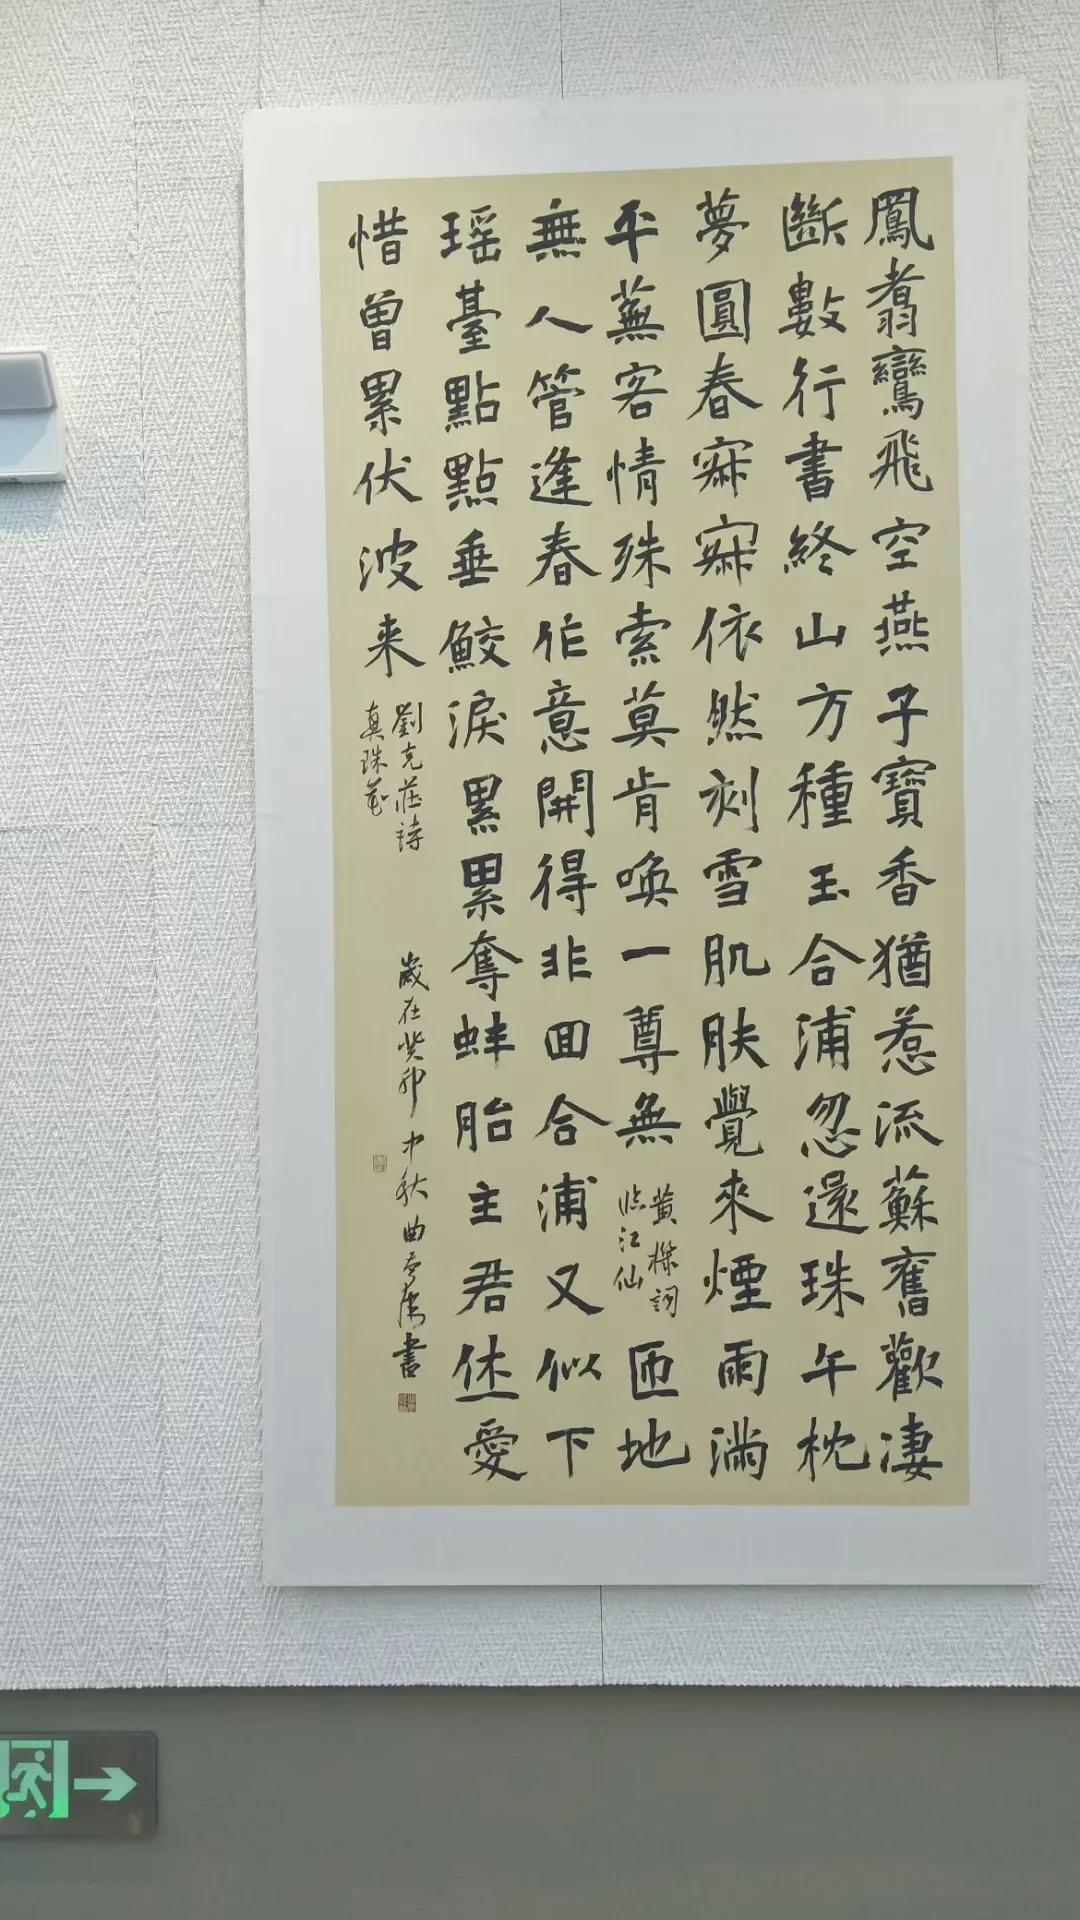 鳳翥鸞飛空燕子寶香猶惹流蘇舊歡凄
斷數行書終山方種玉合浦忽還珠午枕
夢圓春寂寂依然刻雪肌膚覺來煙雨滿
平蕪客情殊索莫肯喚一尊無
黄機詞
臨江仙
匝地
無人管逢春作意開得非回合浦又似下
瑶臺點點垂鮫淚累累奪蚌胎主君休愛
惜曾累伏波来
劉克莊詩
真珠花
歲在癸卯中秋曲
書